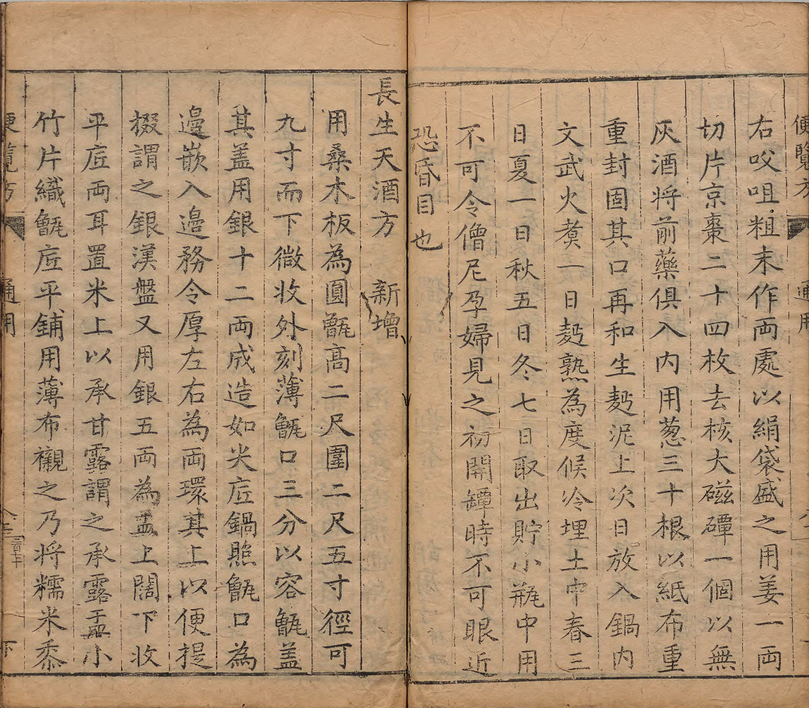 便覽方
通用
右㕮咀粗末作両處以絹袋盛之用姜一両
切片京棗二十四枚去核大磁罈一個以無
灰酒将前藥俱入內用葱三十根以紙布重
重封固其口再和生麪泥上次日放入鍋內
文武火煑一日麪熟為度候冷埋土中春三
日夏一日秋五日冬七日取出貯小瓶中用
不可令僧尼孕婦見之初開罈時不可眼近
恐昏目也
長生天酒方 新增
用桑木板為圓甑高二尺圍二尺五寸徑可
九寸而下微收外刻薄甑口三分以容甑盖
其盖用銀十二両成造如尖底鍋照甑口為
邊嵌入邊務令厚左右為両環其上以便提
掇謂之銀漢盤又用銀五両為盂上闊下收
平底両耳置米上以承甘露謂之承露盂小
竹片織甑底平鋪用薄布襯之乃将糯米黍
便覽方
通用
下